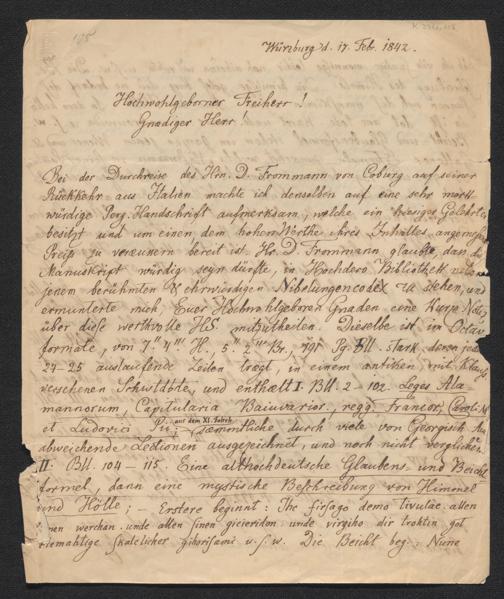 Würzburg d. 17. Feb. 1842.
Hochwohlgeborner Freiherr!
Gnædiger Herr!
Bei der Durchreise des Hrn. D. Frommann von Coburg auf seiner
Rückkehr aus Italien machte ich denselben auf eine sehr merk
würdige Perg. Handschrift aufmerksam, welche ein hiesiger Gelehrter
besitzt und um einen dem hohen Werthe ihres Inhaltes angemessnen
Preis zu veräussern bereit ist. Hr. D. Frommann glaubte, dass das
Manuskript würdig seyn dürfte, in Hochdero Bibliothek neben
jenem berühmten & ehrwürdigen Nibelungencodex zu stehen, und
ermunterte mich, Euer Hochwohlgeboren Gnaden eine kurze Notiz
über diese werthvolle HS mitzutheilen. Dieselbe ist im Octav
formate, von 7" 4'" H., 5" 2'" Br., 191 Pg. Bll. stark, deren jedes
24-25 auslaufende Zeilen trægt, in einem antiken mit
versehenen und enthælt I. Bll. 2-102. Leges Ala
mannorum, Capitularia Baiuvarior., regg. Francor., Carol. M.
et Ludovici Pii, aus dem XI. Jahrh. sæmmtliche durch viele von Georgisch
abweichende Lectionen ausgezeichnet, und noch nicht verglichen
II. Bll. 104-115. Eine althochdeutsche Glaubens- und Beicht
formel, dann eine mystische Beschreibung von Himmel
und Hölle; - Erstere beginnt: Ihc firsago demo tivulae. allen
sinen werchan. unde allen sinen gicieridon. unde virgiho dir trohtin got
almahtige gihorisami u. s. w. Die Beicht beg. Nune